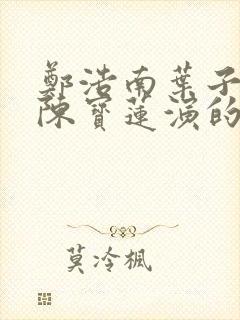 鄭浩南葉子
陳寶蓮演的
莫冷楓